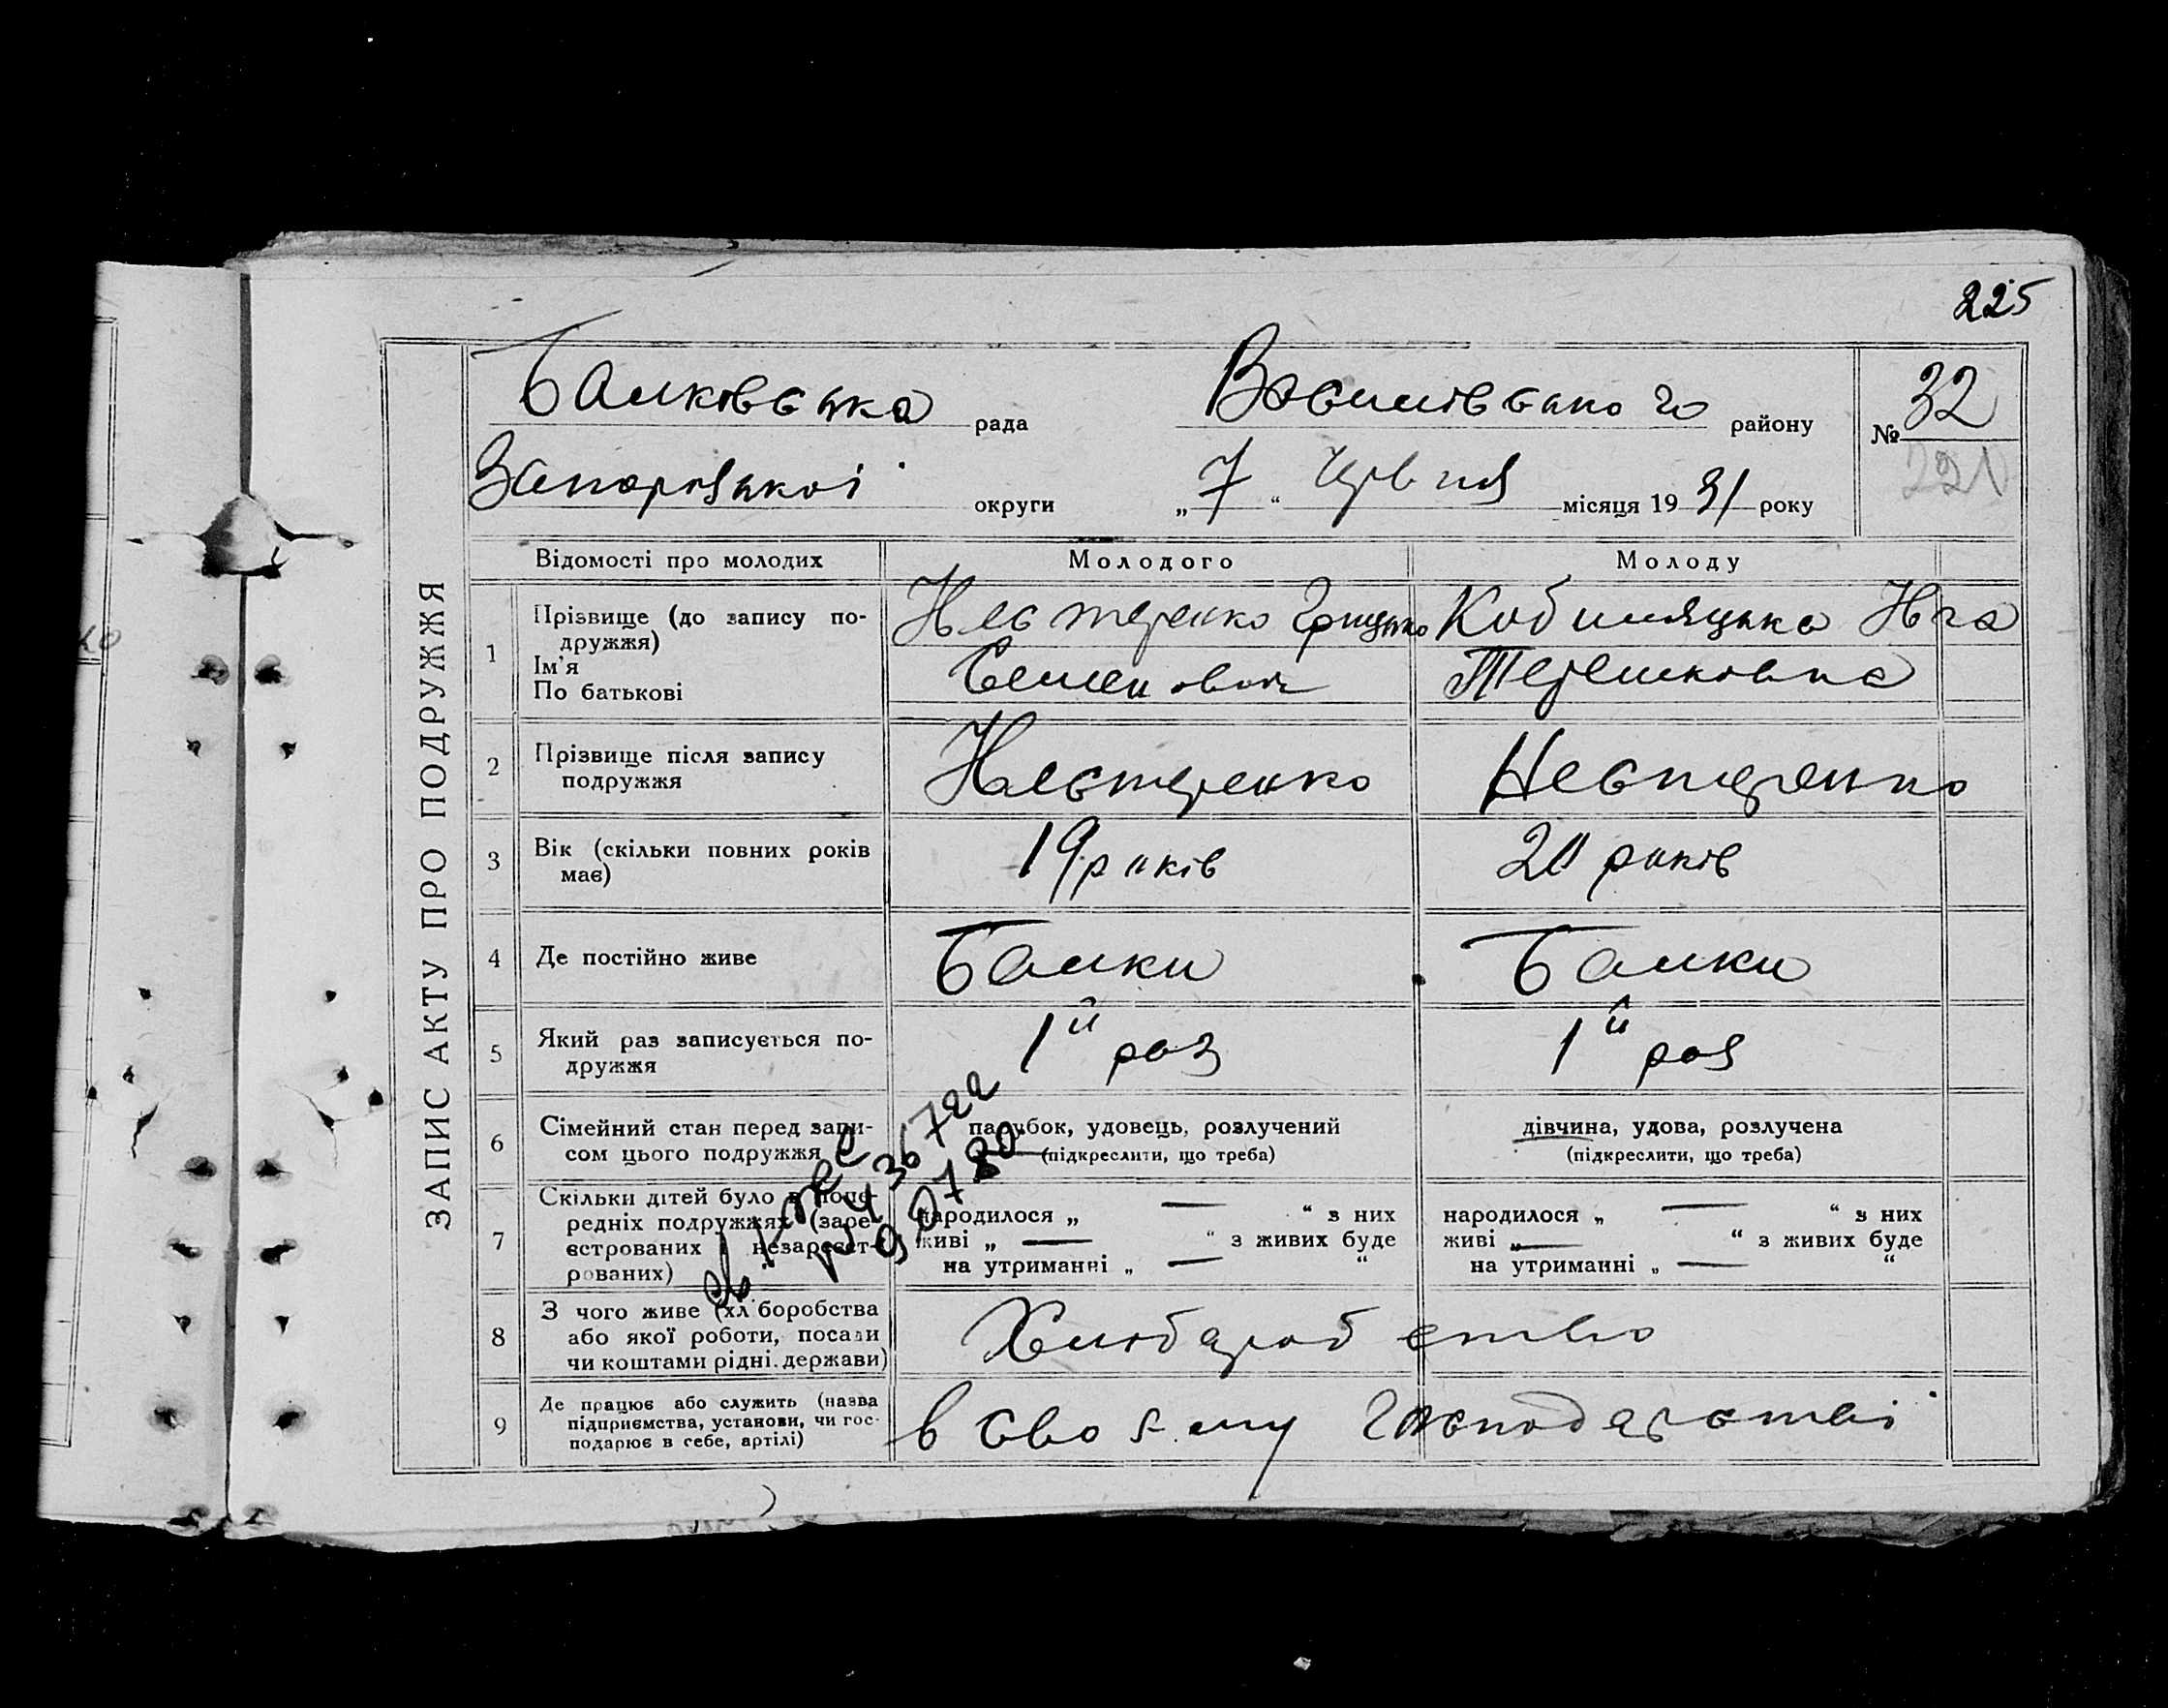 225
ЗАПИС АКТУ ПРО ПОДРУЖЖЯ
Балківська рада Василівського району № 32
221
Запорізької округи „7“ Червня місяця 1931 року
Відомості про молодих Молодого Молоду
1 Прізвище (до запису по-
дружжя)
Ім'я
По батькові
Нестеренко Грицько
Семенович
Кобиляцька
Терешковна
2 Прізвище після запису
подружжя
Нестеренко Нестеренко
3 Вік (скільки повних років
має)
19 років 20 років
4 Де постійно живе Балки Балки
5 Який раз записується по-
дружжя
1й раз 1й раз
6 Сімейний стан перед запи-
сом цього подружжя
парубок, удовець, розлучений
(підкреслити, що треба)
дівчина, удова, розлучена
(підкреслити, що треба)
7 Скільки дітей було в попе-
редніх подружжях (заре-
єстрованих і незареєст-
рованих)
народилося „ — “ з них
живі „ — “ з живих буде
на утриманні „ — “
народилося „ — “ з них
живі „ — “ з живих буде
на утриманні „ — “
8 З чого живе (хліборобства
або якої роботи, посади
чи коштами рідні, держави)
Хлібороб ство
9 Де працює або служить (назва
підприємства, установи, чи гос-
подарює в себе, артілі)
в своєму господарстві